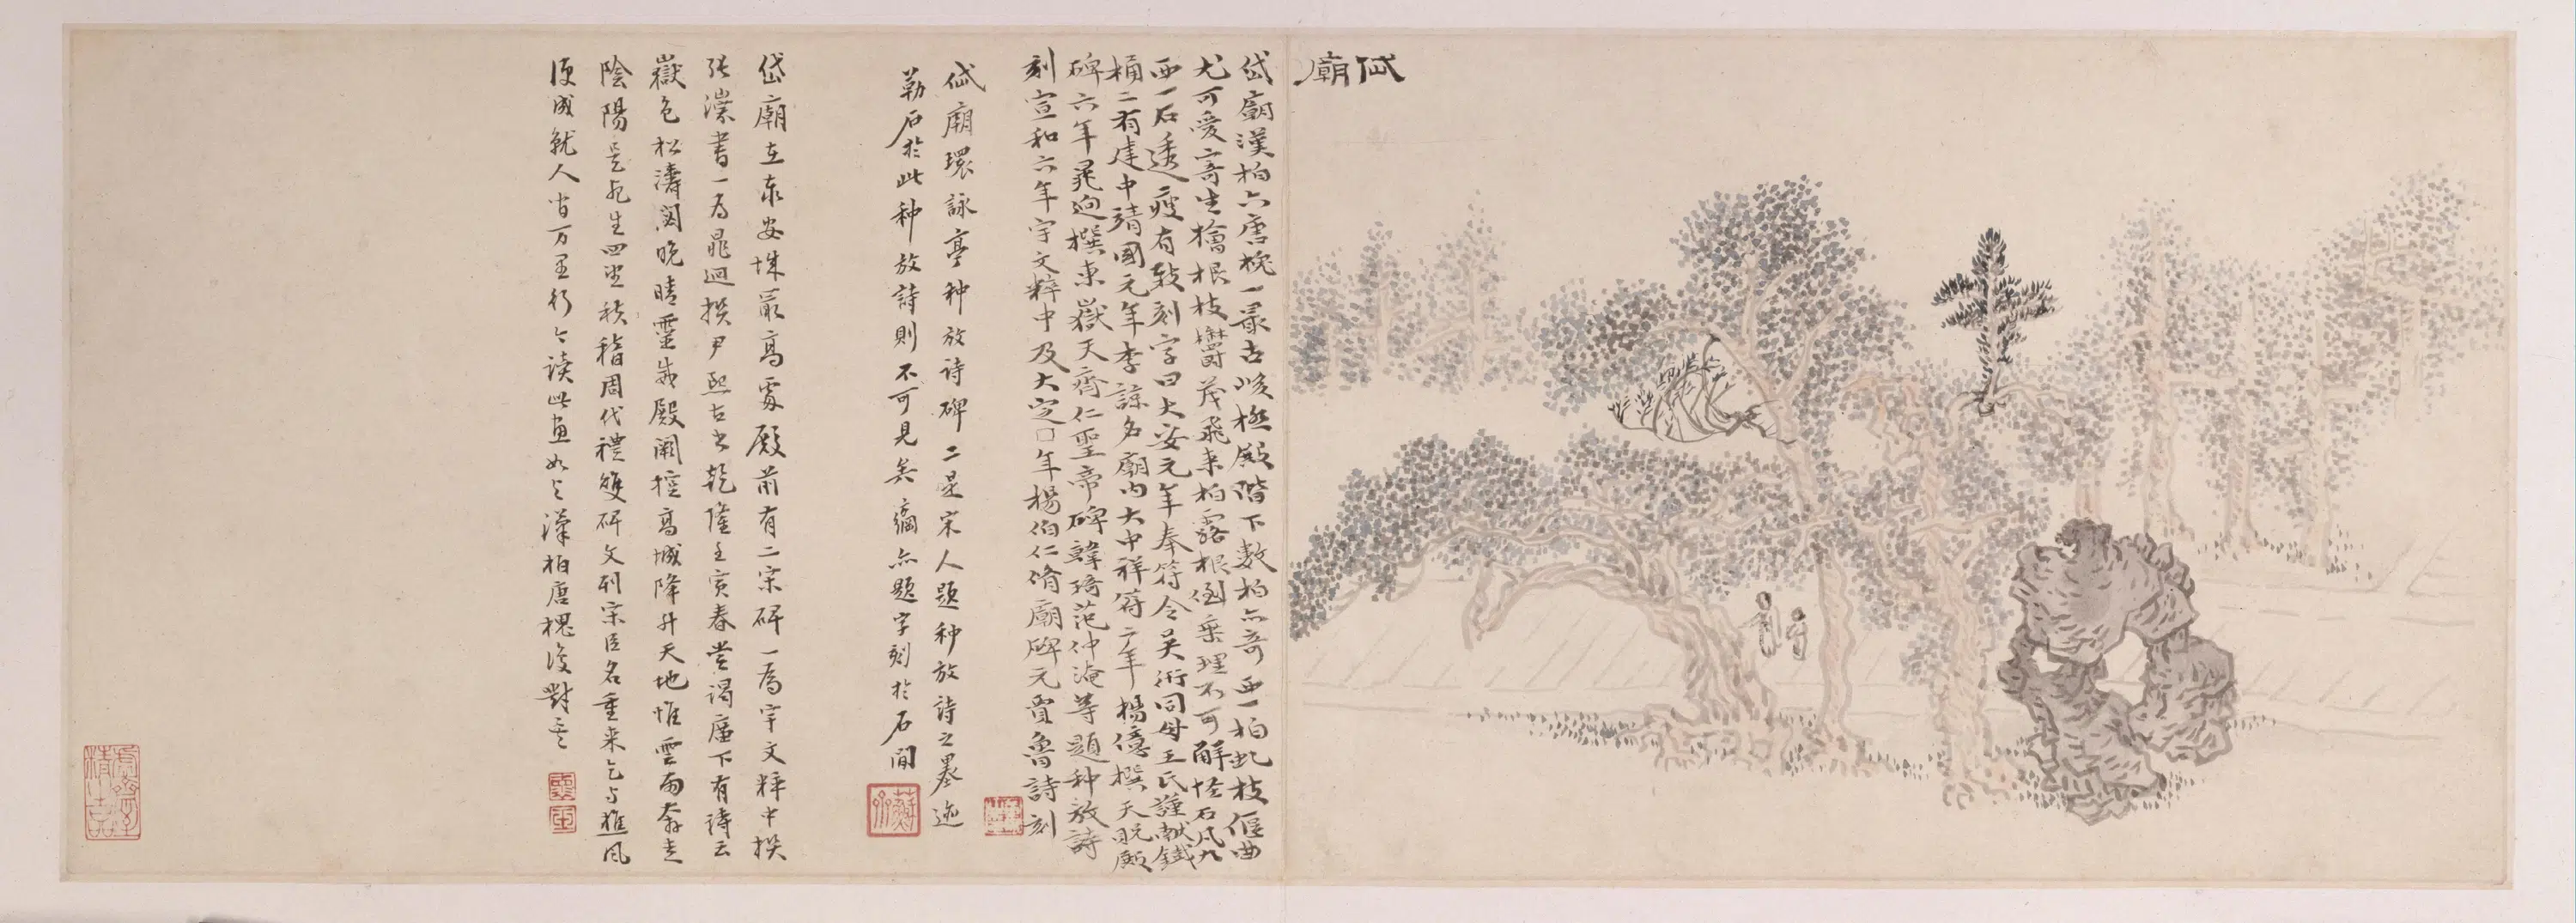 岱廟
岱廟漢柏六唐槐一最古峻極殿階下數柏亦奇西一柏虬枝偃曲
尤可愛寄生檜根枝鬱茂飛来柏露根倒垂理不可解怪石凡九
西一石透瘦有致刻字曰大安元年奉符令吴衎同母王氏謹献鐵
桶二有建中靖國元年李諒名廟内大中祥符二年楊億撰天貺殿
碑六年晁迥撰東嶽天齊仁聖帝碑韓琦范仲淹等題种放詩
刻宣和六年宇文粹中及大定□年楊伯仁脩廟碑元賈魯詩刻
岱廟環詠亭种放詩碑二是宋人題种放詩之墨迹
勒石於此种放詩則不可見矣 亦題字刻於石間
岱廟在泰安城最高處殿前有二宋碑一為宇文粹中撰
張漴書一為晁迥撰尹熙古書乾隆壬寅春嘗謁廡下有詩云
嶽色松濤閣晚晴靈 殿闕控高城降升天地惟雲雨奔走
陰陽是死生四望秩稽周代禮雙碑文列宋臣名重来乞与 風
便成就人間万里行今讀此畫如与漢柏唐槐復對語